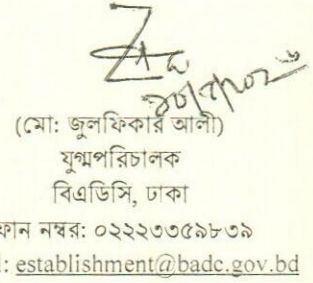 (মো: জুলফিকার আলী)
যুগ্মপরিচালক
বিএডিসি, ঢাকা
ফোন নম্বর: ০২২২৩৩৫৯৮৩৯
l: establishment@badc.gov.bd